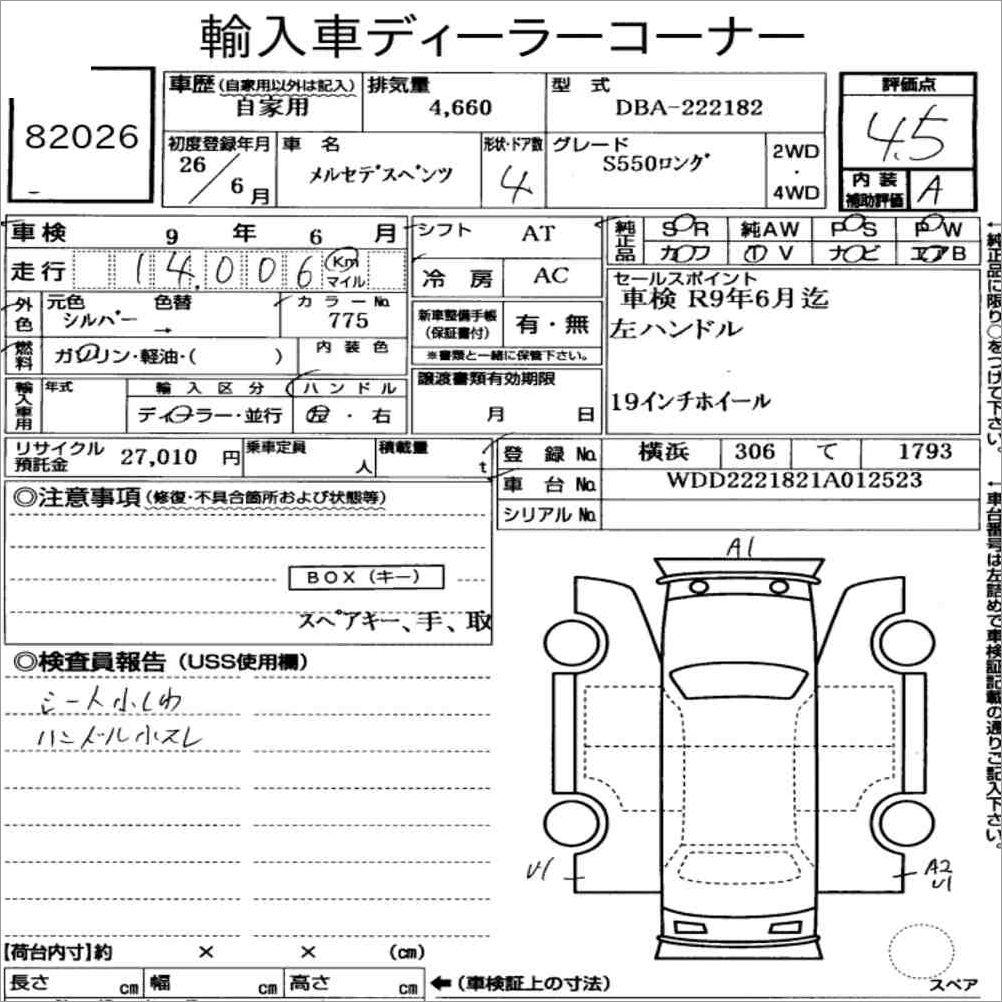 輸入車ディーラーコーナー
82026
車歴(自家用以外は記入)
自家用
排気量
4,660
型式
DBA-222182
評価点
4.5
内装
補助評価
A
初度登録年月
26/6月
車名
メルセデスベンツ
形状・ドア数
4
グレード
S550ロング
2WD
・
4WD
車検 9年 6月
走行 14,006 Km
マイル
外色
元色
シルバー
色替
→
カラーNo.
775
燃料
ガソリン・軽油・( )
内装色
輸入車用
年式
輸入区分
ディーラー・並行
ハンドル
左・右
シフト AT
冷房 AC
新車整備手帳
(保証書付)
有・無
※書類と一緒に保管下さい。
譲渡書類有効期限
月 日
純正品
SR
純AW
PS
PW
カワ
TV
ナビ
エアB
セールスポイント
車検 R9年6月迄
左ハンドル
19インチホイール
←純正品に限り○をつけて下さい。
リサイクル
預託金
27,010円
乗車定員
人
積載量
t
登録No. 横浜 306 て 1793
車台No. WDD2221821A012523
シリアルNo.
←車台番号は左詰めで車検証記載の通りご記入下さい。
◎注意事項(修復・不具合箇所および状態等)
BOX(キー)
スペアキー、手、取
◎検査員報告(USS使用欄)
シート小しわ
ハンドル小スレ
A1
U1
A2
U1
スペア
【荷台内寸】約 × × (cm)
長さ cm 幅 cm 高さ cm ←(車検証上の寸法)